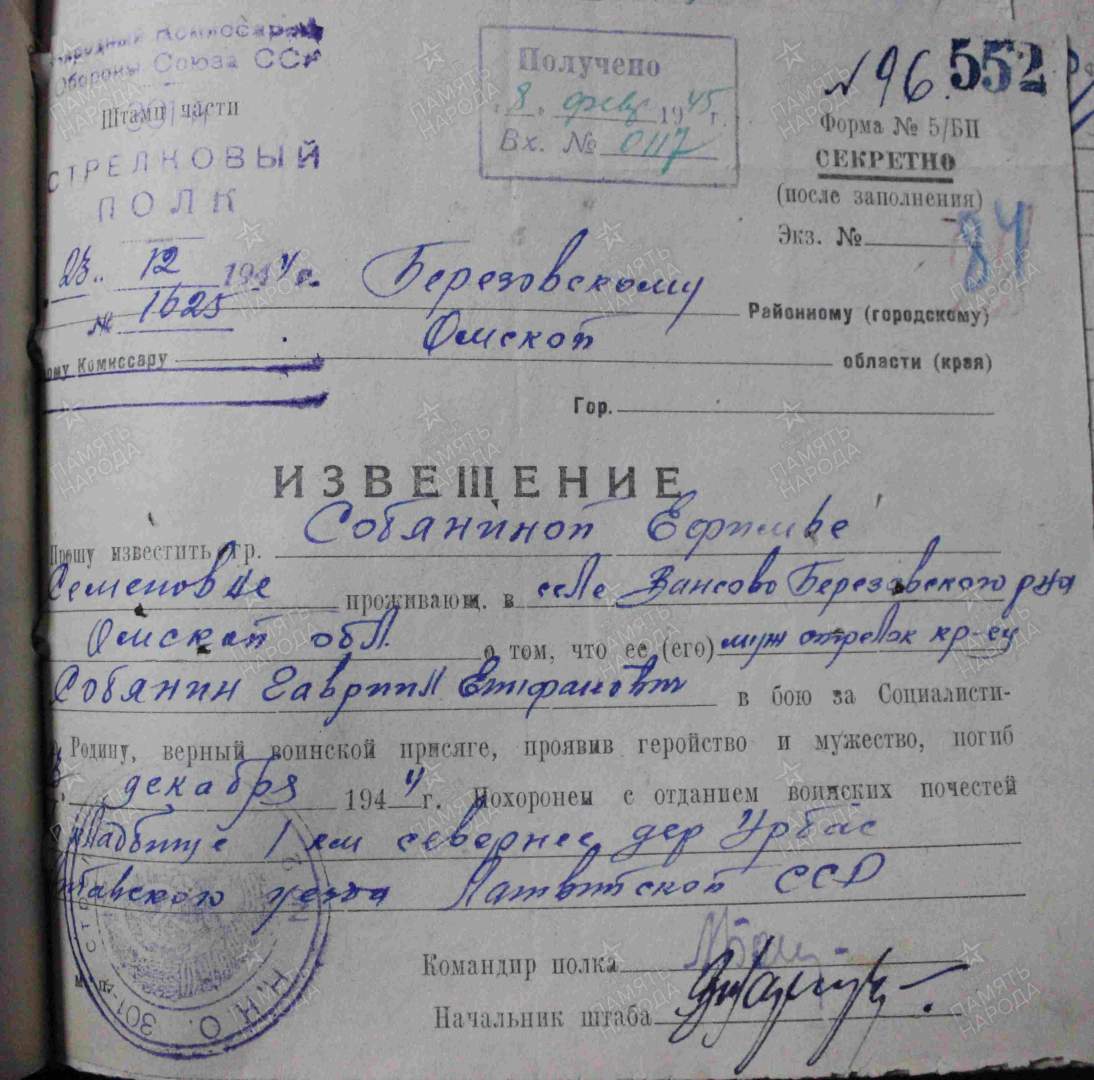 Народный Комиссариат
Обороны Союза ССР
Штамп части
301-й
СТРЕЛКОВЫЙ
ПОЛК
Получено
"8" февр 1945 г.
Вх. № 0117
№ 96. 552
Форма № 5/БП
СЕКРЕТНО
(после заполнения)
Экз. №
84
23. 12 1944 г.
№ 1625
Березовскому
Районному (городскому)
ому Комиссару Омской области (края)
Гор.
ИЗВЕЩЕНИЕ
Прошу известить гр. Собяниной Ефимье
Семеновне проживающ. в селе Вансово Березовского р-на
Омской обл. о том, что ее (его) муж стрелок кр-ец
Собянин Гавриил Епифанович в бою за Социалисти-
Родину, верный воинской присяге, проявив геройство и мужество, погиб
декабря 1944 г. Похоронен с отданием воинских почестей
кладбище 1 км севернее дер Урбас
уезда Латвийской ССР
Командир полка
Начальник штаба
301-й СТР
Н.К.О.
ПАМЯТЬ НАРОДА